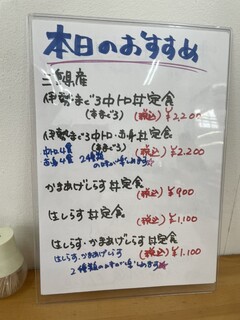 本日のおすすめ
三重県産
伊勢まぐろ中トロ丼定食
(本まぐろ) (税込) ¥2,200
伊勢まぐろ中トロ・赤身丼定食
中トロ4貫 (本まぐろ) (税込) ¥2,200
赤身4貫 2種類の味が楽しめます☆
かまあげしらす丼定食
(税込) ¥900
はしらす丼定食
(税込) ¥1,100
はしらす・かまあげしらす丼定食
はしらす・かまあげしらす (税込) ¥1,100
2種類の味が楽しめます☆